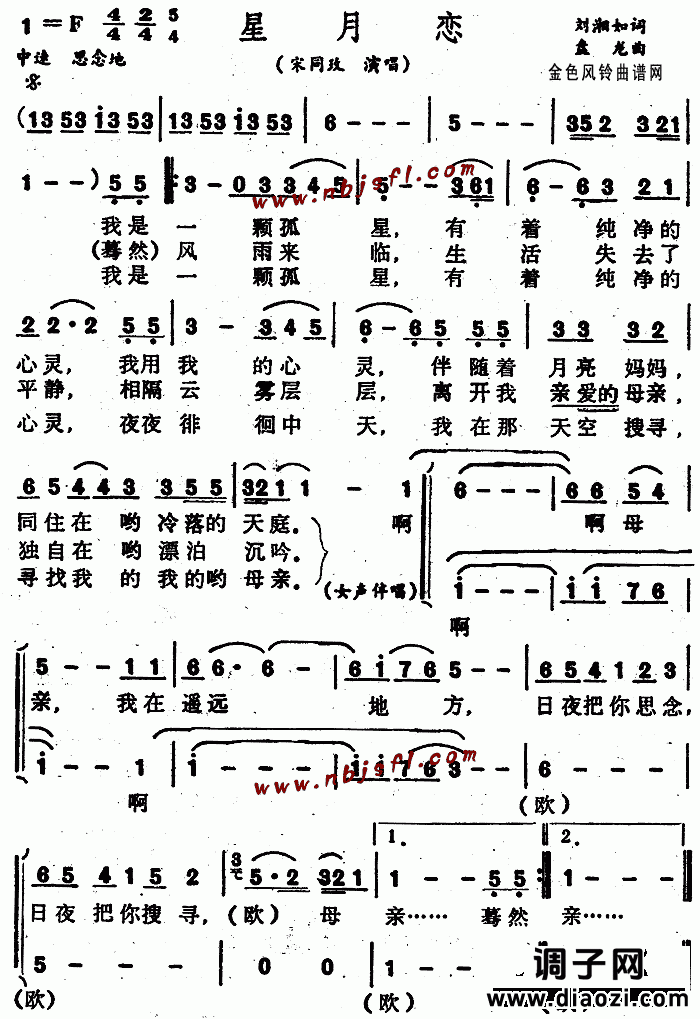 1=F 4/4 2/4 5/4 星月恋 刘湘如词
中速 思念地 (宋同玫 演唱) 盘龙曲
金色风铃曲谱网
(1353 1353 1353 1353 6 - - 5 - - 352 321
1 - -) 5 5 3 - 0 3 3 3 4 5 5 - - 361 6 - 6 3 2 1
www.nbjsfl.com
我是一 颗孤 星, 有 着 纯净的
(蓦然)风 雨来 临, 生 活 失去了
我是一 颗孤 星, 有 着 纯净的
2 2·2 5 5 3 - 3 4 5 6 - 6 5 5 5 3 3 3 2
心灵, 我用我 的心 灵, 伴随着 月亮 妈妈,
平静, 相隔云 雾层 层, 离开我 亲爱的母亲,
心灵, 夜夜徘 徊中 天, 我在那 天空 搜寻,
6 5 4 4 3 3 5 5 3 2 1 1 - 1 6 - - - 6 6 5 4
同住在 哟 冷落的 天庭。 啊 啊母
独自在 哟 漂泊 沉吟。
寻找我 的 我的哟 母亲。 (女声伴唱)
1 - - - 1 1 7 6
啊
5 - - 1 1 6 6· 6 - 6 1 7 6 5 - - 6 5 4 1 2 3
亲, 我在遥远 地 方, 日夜把你思念,
1 - - 1 1 - - - 1 1 7 6 3 6 - -
www.nbjsfl.com
啊 (欧)
1. 2.
6 5 4 1 5 2 5·2 3 2 1 1 - - 5 5 1 - -
日夜 把你搜 寻, (欧) 母 亲…… 蓦然 亲……
5 - - - 0 0
(欧) (欧)
调子网
www.diaozi.com